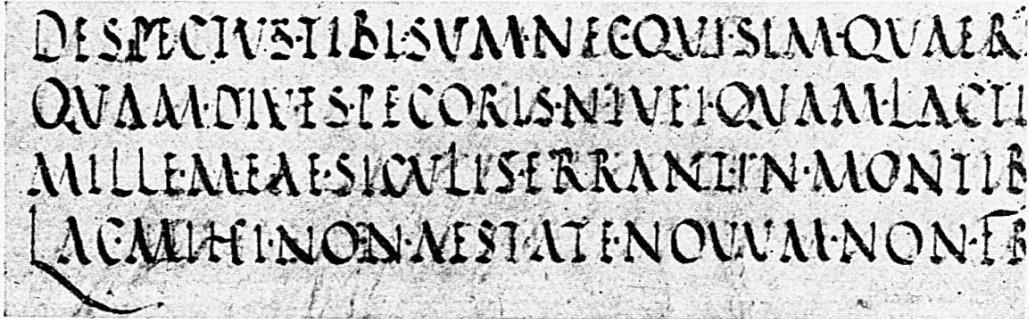 DESPECTVS·TIBI·SVM·NEC·QVI·SIM·QVAER
QVAM·DIVES·PECORIS·NIVEI·QVAM·LACTI
MILLE·MEAE·SICVLIS·ERRANT·IN·MONTIB
LAC·MIHI·NON·AESTATE·NOVVM·NON·FR